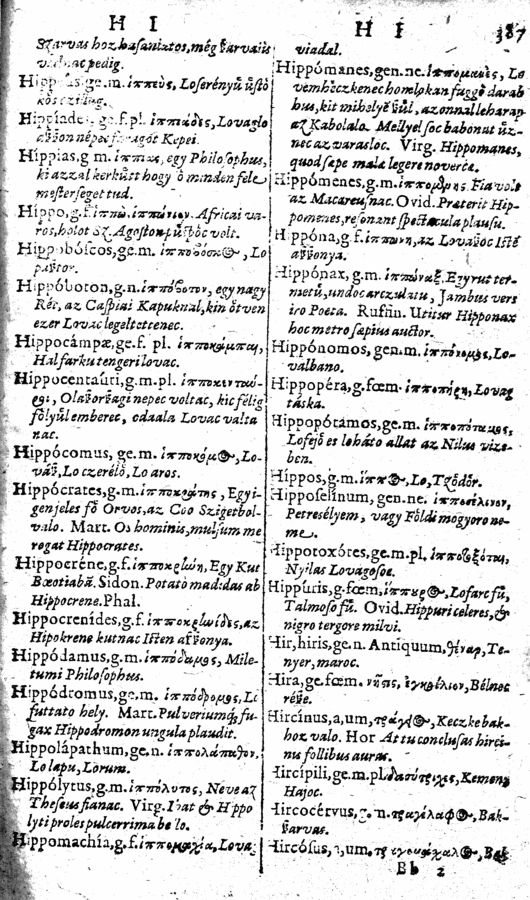 H I
Szarvas hoz hasanlatos, még szarvais
vannac pedig.
Hippias, ge.m. ἱππεὺς, Loserényű üstö
kös czillag.
Hippiades, ge.f.pl. ἱππιάδες, Lovaglo
aszszon népec faragót Kepei.
Hippias, g m. ἱππίας, egy Philosophus,
ki azzal kerkütt hogy ő minden fele
mesterseget tud.
Hippo, g.f. ἱππὼ. Africai va-
ros, holot Sz. Agoston püspöc volt.
Hippobóscos, ge.m. ἱπποβόσκος, Lo
pasztor.
Hippóboton, g.n. ἱππόβοτον, egy nagy
Rét, az Caspiai Kapuknal, kin ötven
ezer Lovac legeltetenec.
Hippocámpæ, ge.f. pl. ἱπποκάμπαι,
Halfarku tengeri lovac.
Hippocentaúri, g.m.pl. ἱπποκενταύ-
ροι, Olaszorszagi nepec voltac, kic félig
fölyűl emberec, odaala Lovac valta
nac.
Hippócomus, ge.m. ἱπποκόμος, Lo-
vász, Lo czerélő, Lo aros.
Hippócrates, g.m. ἱπποκράτης, Egy i-
genjeles fő Orvos, az Coo Szigetböl-
valo. Mart. Os hominis, mulsum me
rogat Hippocrates.
Hippocréne, g.f. ἱπποκρήνη, Egy Kut
Bœotiabā. Sidon. Potatò madidas ab
Hippocrene. Phal.
Hippocrenídes, g.f. ἱπποκρηνίδες, az
Hipokrene kutnac Isten aszszonya.
Hippódamus, g.m. ἱππόδαμος, Mile-
tumi Philosophus.
Hippódromus, ge.m. ἱππόδρομος, Lo
futtato hely. Mart. Pulveriumq́; fu-
gax Hippodromon ungula plaudit.
Hippolápathum, ge.n. ἱππολάπαθον,
Lo lapu, Lorum.
Hippólytus, g.m. ἱππόλυτος, Neve az
Theseus fianac. Virg. Ibat & Hippo
lyti proles pulcerrima bello.
Hippomachía, g.f. ἱππομαχία, Lovag
H I 387
viadal.
Hippómanes, gen.ne. ἱππομανὲς, Lo
vemheczkenec homlokan függő darab
hus, kit mihelyt szűl, azonnal leharap
az Kabolalo. Mellyel soc babonat űz-
nec az varasloc. Virg. Hippomanes,
quod sæpe malæ legere novercæ.
Hippómenes, g.m. ἱππομένης. Fia volt
az Macareusnac. Ovid. Præterit Hip-
pomenes, resonant spectacula plausu.
Hippóna, g.f. ἱππώνη, az Lovaszoc Istē
aszszonya.
Hippónax, g.m. ἱππώναξ. Egy rut ter-
metü, undoc arczulatu, Jambus vers
iro Poeta. Ruffin. Utitur Hipponax
hoc metro sæpius auctor.
Hippónomos, gen.m. ἱππόνομος, Lo-
valbano.
Hippopéra, g.fœm. ἱπποπήρη, Lovag
táska.
Hippopótamos, ge.m. ἱπποπόταμος,
Lofejő es lohato allat az Nilus vize-
ben.
Hippos, g.m. ἵππος, Lo, Tződőr.
Hipposelínum, gen.ne. ἱπποσέλινον,
Petresélyem, vagy Földi mogyoro ne-
me.
Hippotoxótes, ge.m.pl. ἱπποτοξόται,
Nyilas Lovagosoc.
Hippúris, g.fœm. ἵππουρος, Lofarc fü,
Talmoso fü. Ovid. Hippuri celeres, &
nigro tergore milvi.
Hir, hiris, ge.n. Antiquum, θέναρ, Te-
nyer, maroc.
Hira, ge.fœm. νῆστις, Bélnec
része.
Hircínus, a, um, τράγειος, Keczke bak-
hoz valo. Hor At tu conclusas hirci-
nu follibus auras.
Hircípili, ge.m.pl. δασύτριχες, Kemeny
Hajoc.
Hircocérvus, g.n. τραγέλαφος, Bak-
szarvas.
Hircósus, a, um, Bak
Bb 2